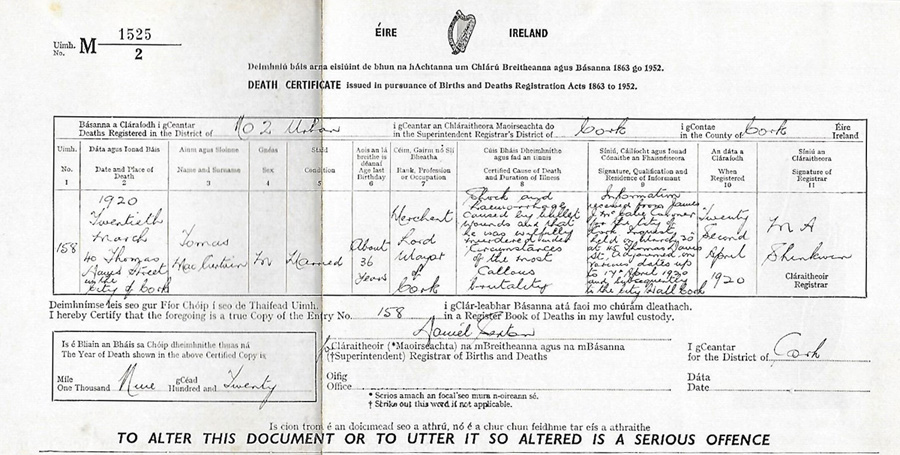 Uimh. No. M 1525 2
ÉIRE IRELAND
Deimhniú báis arna eisiúint de bhun na hAchtanna um Chlárú Breitheanna agus Básanna 1863 go 1952.
DEATH CERTIFICATE issued in pursuance of Births and Deaths Registration Acts 1863 to 1952.
Básanna a Cláraíodh i gCeantar i gCeantar an Chláraitheora Maoirseachta do i gContae Éire
Deaths Registered in the District of No 2 Urban in the Superintendent Registrar's District of Cork in the County of Cork Ireland
Uimh. No. 1
Dáta agus Ionad Báis
Date and Place of Death 2
Ainm agus Sloinne
Name and Surname 3
Gnéas
Sex 4
Staid
Condition 5
Aois an lá breithe is déanaí
Age last Birthday 6
Céim, Gairm nó Slí Bheatha
Rank, Profession or Occupation 7
Cúis Bháis Dheimhnithe agus fad an tinnis
Certified Cause of Death and Duration of Illness 8
Síniú, Cáilíocht agus Ionad Cónaithe an Fhaisnéiseora
Signature, Qualification and Residence of Informant 9
An dáta a Cláraíodh
When Registered 10
Síniú an Cláraitheora
Signature of Registrar 11
158
1920
Twentieth
March
40 Thomas
Davis Street
in the
City of Cork
Tomas
MacCurtain
M
Married
About
36
Years
Merchant
Lord
Mayor
of
Cork
Shock and
haemorrhage
caused by bullet
wounds and that
he was wilfully
murdered under
Circumstances
of the most
Callous
brutality
Information
received from James
J. McCabe Coroner
for the City of
Cork Inquest
held on March 20
at 40 Thomas Davis
St. adjourned on
various dates up
to 17th April 1920
and subsequently
to the City Hall Cork
Twenty
Second
April
1920
M A
Shinkwin
Cláraitheoir
Registrar
Deimhnímse leis seo gur Fíor Chóip í seo de Thaifead Uimh. i gClár-leabhar Básanna atá faoi mo chúram dleathach.
I hereby Certify that the foregoing is a true Copy of the Entry No. 158 in a Register Book of Deaths in my lawful custody.
Daniel Sexton
Is é Bliain an Bháis sa Chóip dheimhnithe thuas ná
The Year of Death shown in the above Certified Copy is
Míle gCéad
One Thousand Nine Hundred and Twenty
Cláraitheoir (*Maoirseachta) na mBreitheanna agus na mBásanna
(†Superintendent) Registrar of Births and Deaths
I gCeantar
for the District of Cork
Oifig
Office
Dáta
Date
* Scrios amach an focal seo muna n-oireann sé.
† Strike out this word if not applicable.
Is cion trom é an doiciméad seo a athrú, nó é a chur chun feidhme tar éis a athraithe
TO ALTER THIS DOCUMENT OR TO UTTER IT SO ALTERED IS A SERIOUS OFFENCE